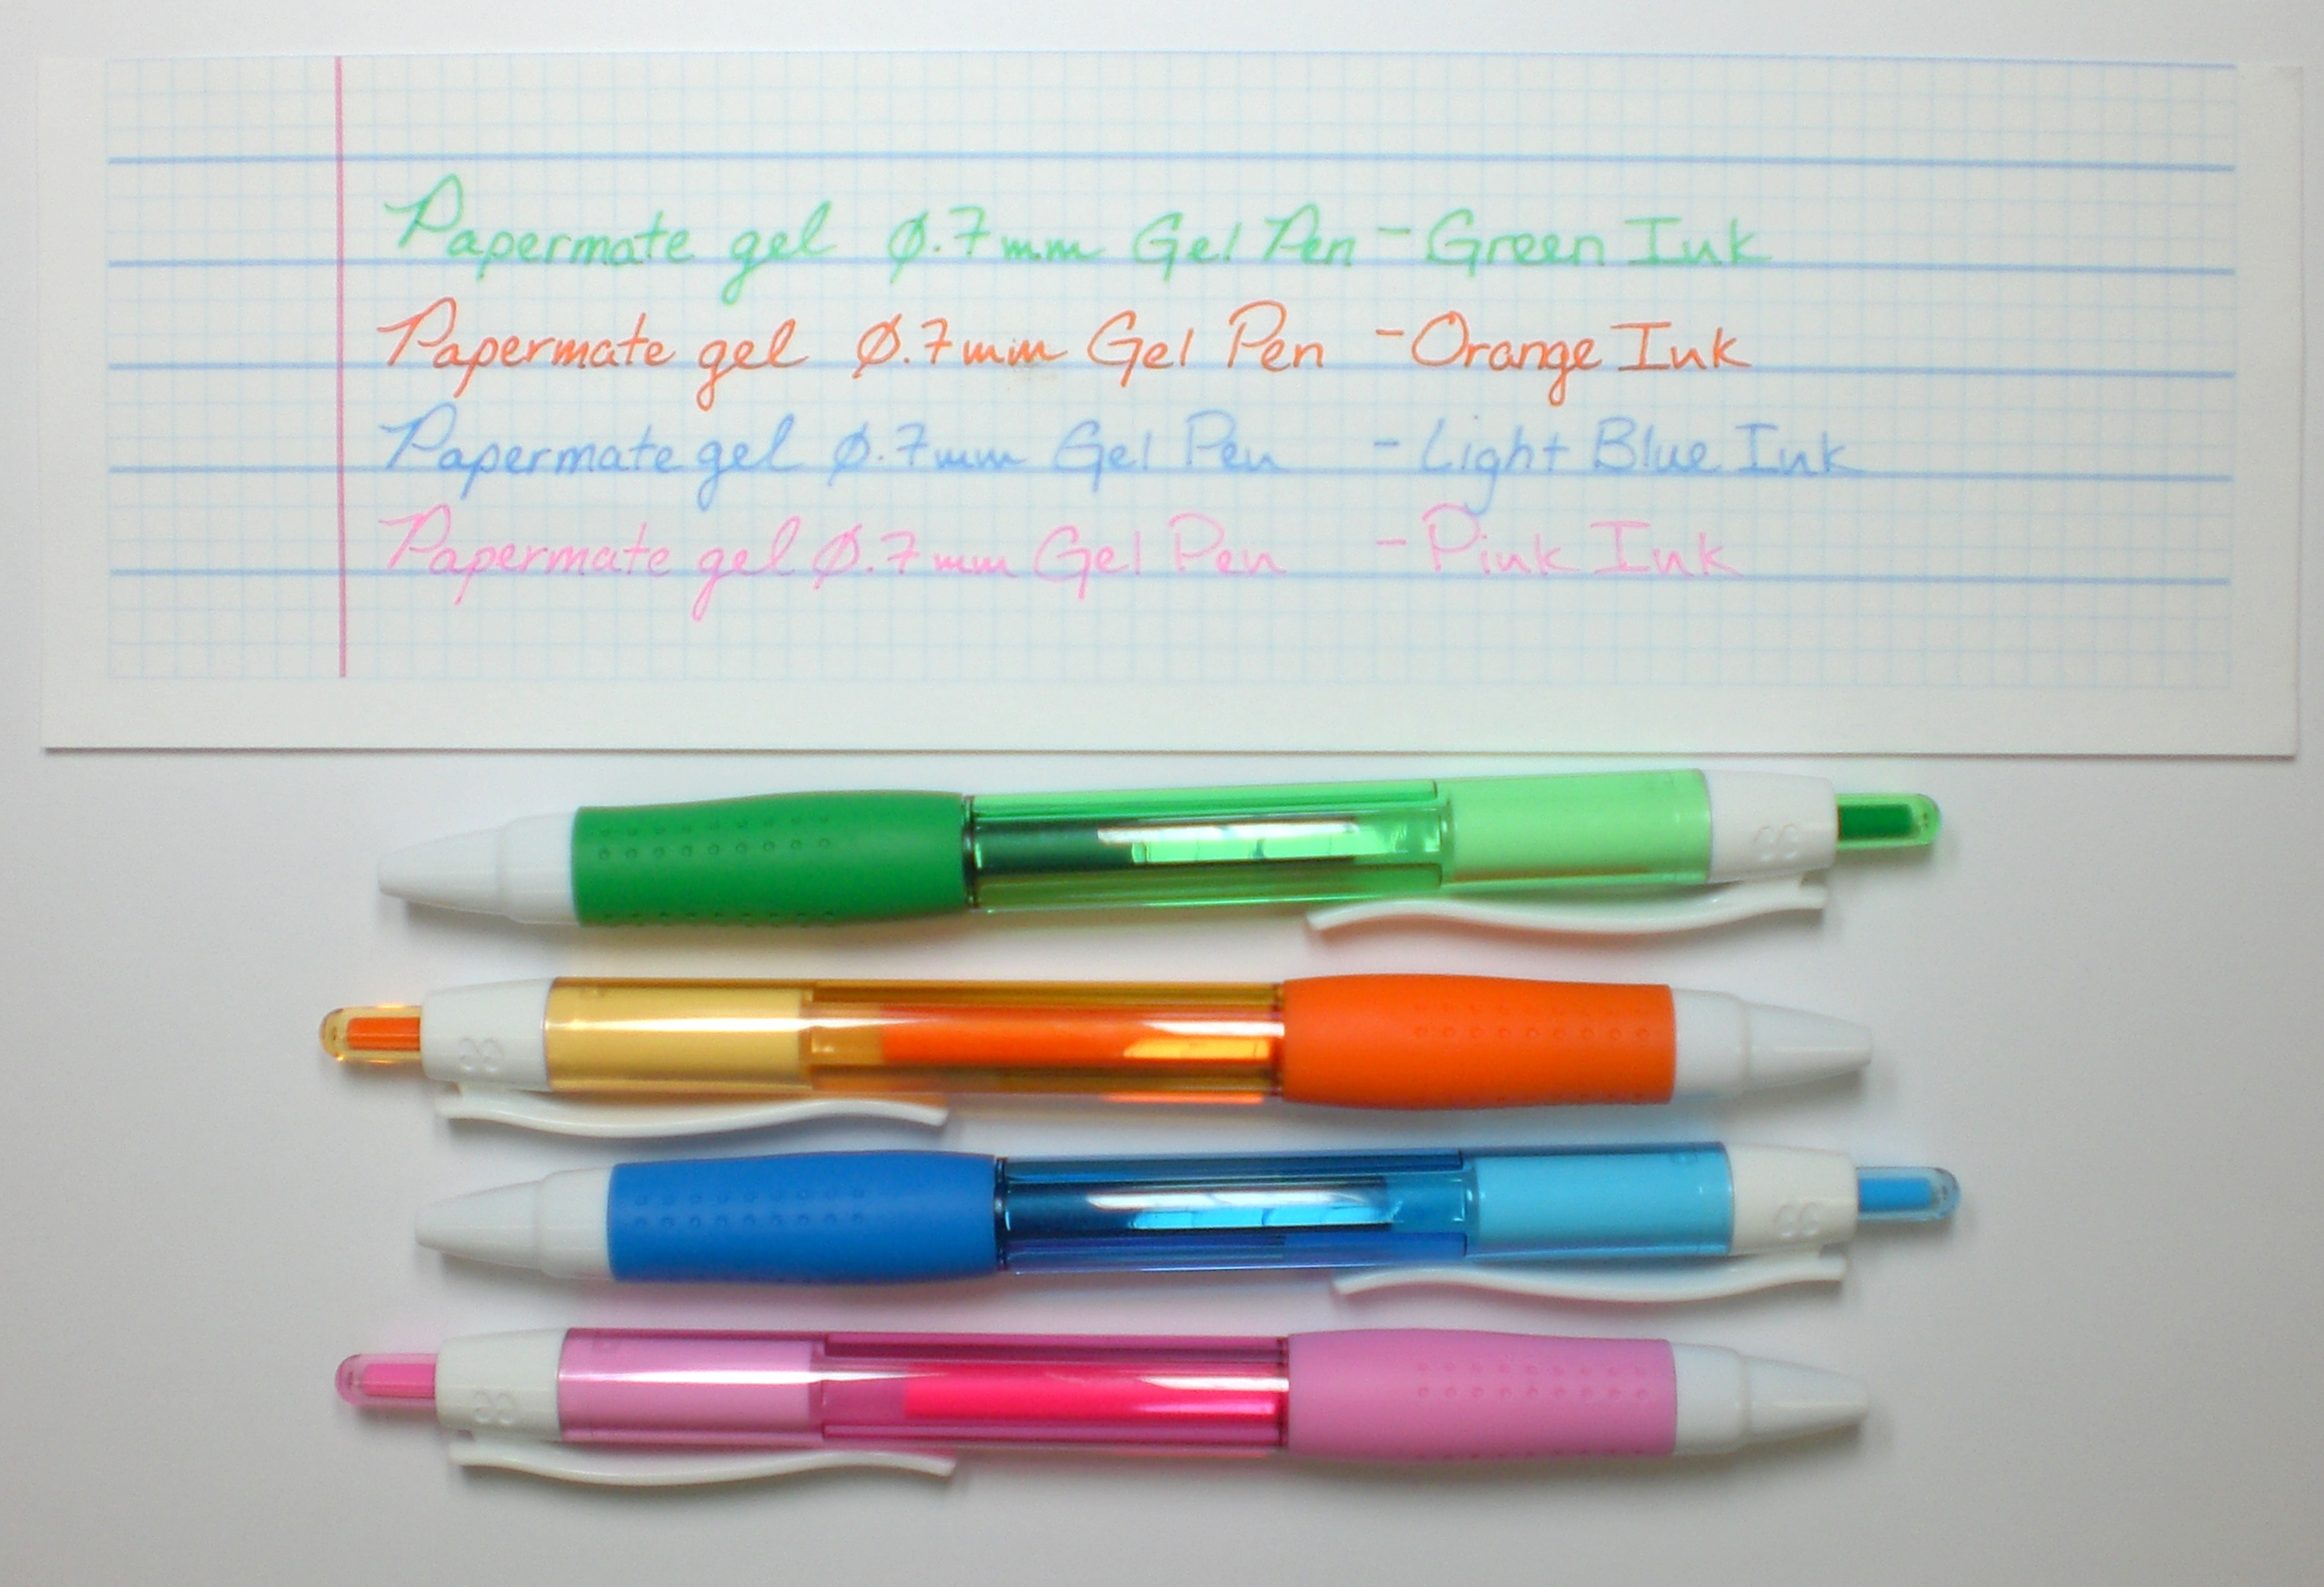 Papermate gel 0.7mm Gel Pen - Green Ink
Papermate gel 0.7mm Gel Pen - Orange Ink
Papermate gel 0.7mm Gel Pen - Light Blue Ink
Papermate gel 0.7mm Gel Pen - Pink Ink